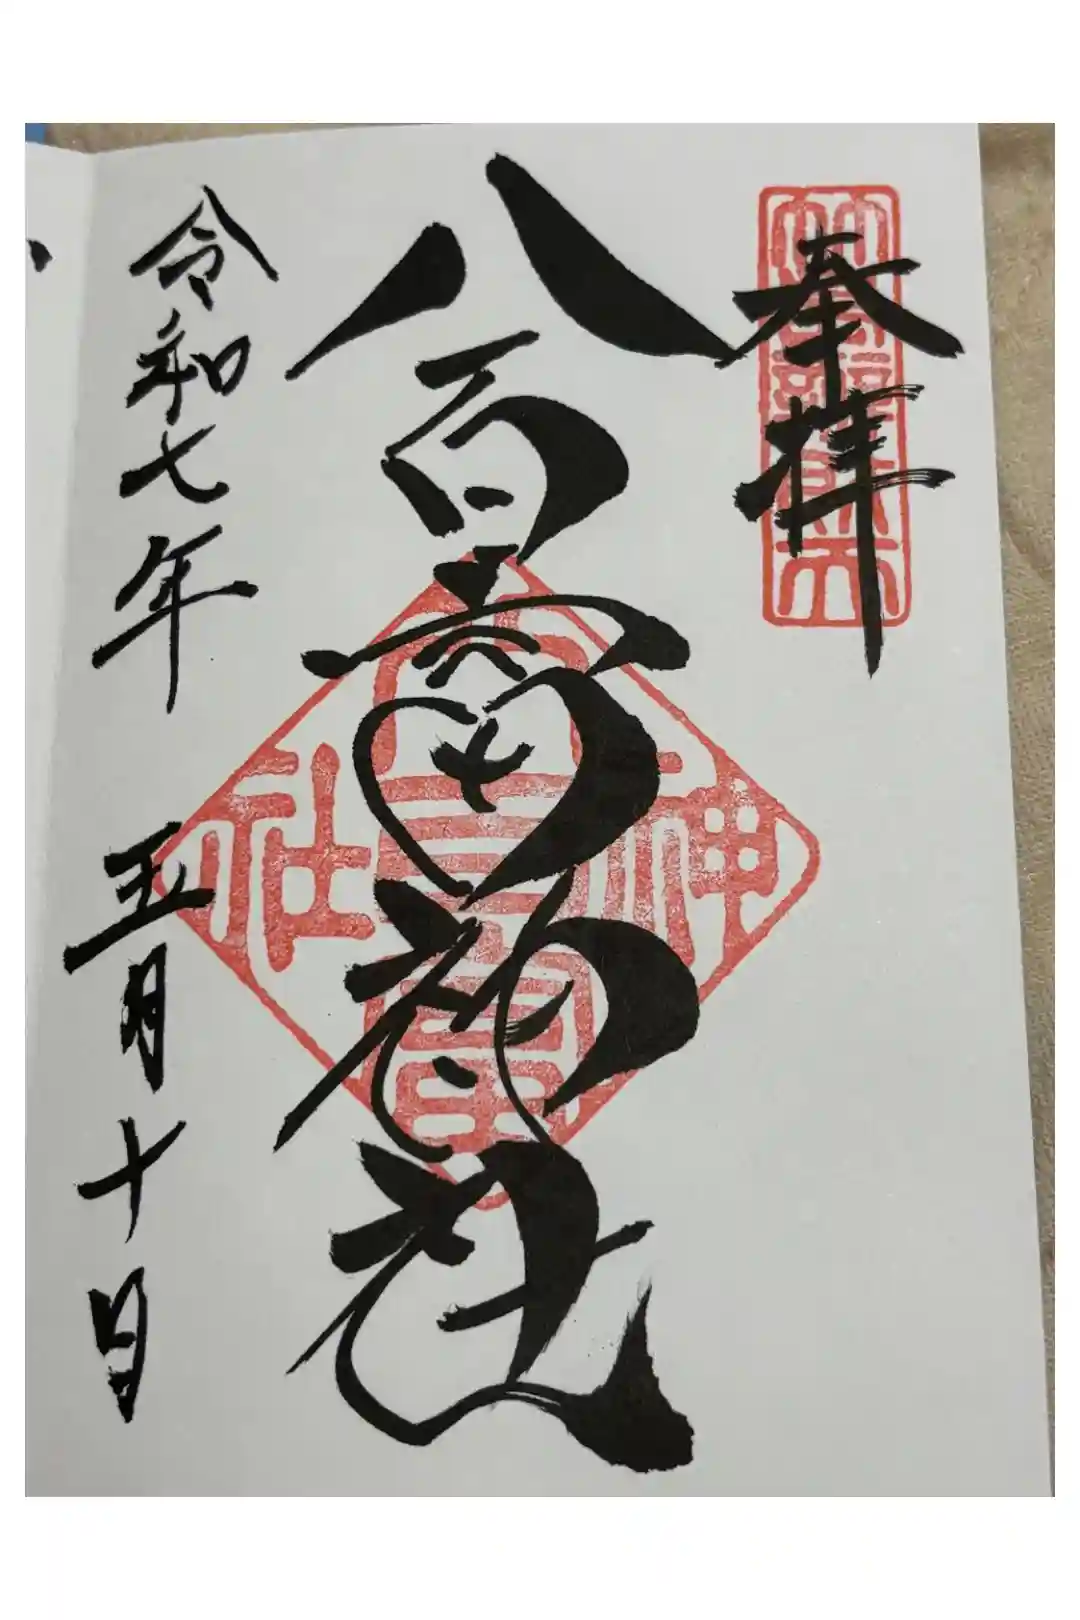 奉拝
八百富神社
八百富神社
令和七年五月十日